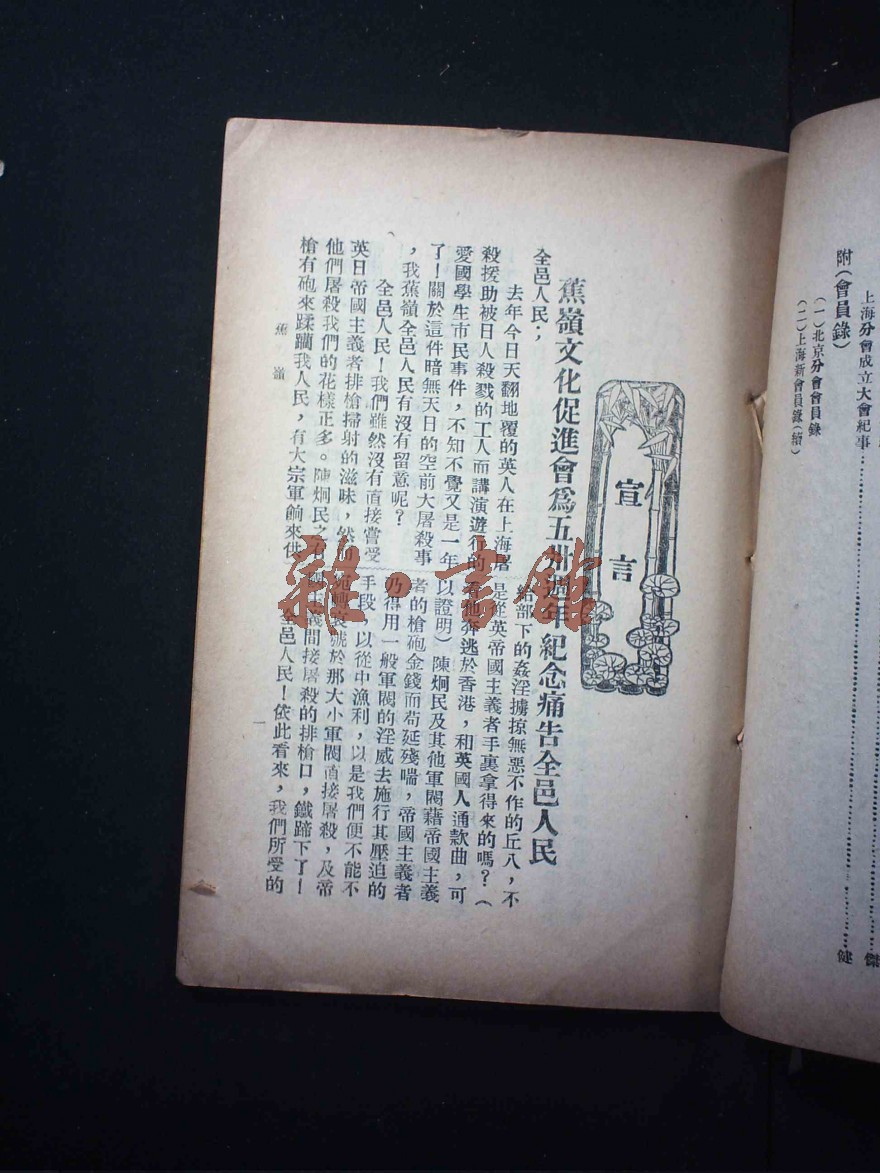 傑
上海分會成立大會紀事……………………健
附(會員錄)
(一)北京分會會員錄
(二)上海新會員錄(續)
宣言
蕉嶺文化促進會爲五卅週年紀念痛告全邑人民
全邑人民;
去年今日天翻地覆的英人在上海屠
殺援助被日人殺戮的工人而講演遊行的
愛國學生市民事件,不知不覺又是一年
了!關於這件暗無天日的空前大屠殺事
,我蕉嶺全邑人民有沒有留意呢?
全邑人民!我們雖然沒有直接嘗受
英日帝國主義者排槍掃射的滋味,然而
他們屠殺我們的花樣正多。陳炯民之有
槍有砲來蹂躪我人民,有大宗軍餉來供
給部下的姦淫擄掠無惡不作的丘八,不
是從英帝國主義者手裏拿得來的嗎?(
看他奔逃於香港,和英國人通款曲,可
以證明)陳炯民及其他軍閥藉帝國主義
者的槍砲金錢而苟延殘喘,帝國主義者
乃得用一般軍閥的淫威去施行其壓迫的
手段,以從中漁利,以是我們便不能不
宛轉哀號於那大小軍閥直接屠殺,及帝
國主義間接屠殺的排槍口,鐵蹄下了!
全邑人民!依此看來,我們所受的
蕉嶺
一
雜·書館